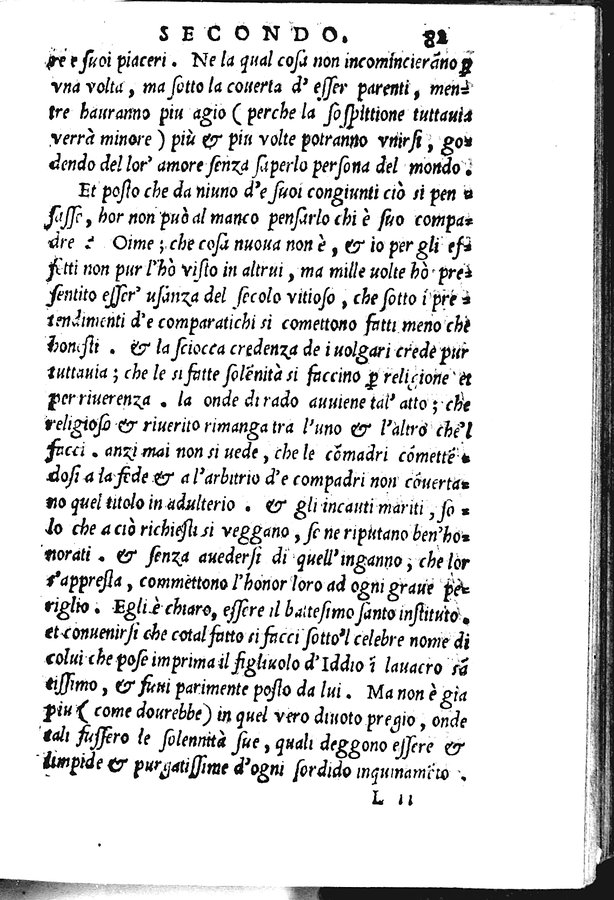 SECONDO. 82
re e suoi piaceri. Ne la qual cosa non incomincierãno ꝑ
vna volta, ma sotto la couerta d'esser parenti, men-
tre hauranno piu agio (perche la sospittione tuttauia
verrà minore) più & piu volte potranno vnirsi, go-
dendo del lor' amore senza saperlo persona del mondo.
Et posto che da niuno d'e suoi congiunti ciò si pen -
sasse, hor non può al manco pensarlo chi è suo compa-
dre : Oime; che cosa nuoua non è, & io per gli ef-
fetti non pur l'hò visto in altrui, ma mille uolte hò pre-
sentito esser' usanza del secolo vitioso, che sotto i pre -
tendimenti d'e comparatichi si comettono fatti meno che
honesti. & la sciocca credenza de i uolgari crede pur
tuttauia; che le si fatte solẽnità si faccino ꝑ religione et
per riuerenza. la onde di rado auuiene tal' atto; che
religioso & riuerito rimanga tra l'uno & l'altro che'l
facci. anzi mai non si uede, che le cõmadri cõmettẽ-
dosi a la fede & a l'arbitrio d'e compadri non cõuerta-
no quel titolo in adulterio. & gli incauti mariti, so-
lo che a ciò richiesti si veggano, se ne riputano ben'ho-
norati. & senza auedersi di quell'inganno, che lor
s'appresta, commettono l'honor loro ad ogni graue pe-
riglio. Egli è chiaro, essere il battesimo santo instituto.
et conuenirsi che cotal fatto si facci sotto'l celebre nome di
colui che pose imprima il figliuolo d'Iddio ĩ lauacro sã
tissimo, & fuui parimente posto da lui. Ma non è gia
piu (come dourebbe) in quel vero diuoto pregio, onde
tali fussero le solennità sue, quali deggono essere &
limpide & purgatissime d'ogni sordido inquinamẽto.
L ii